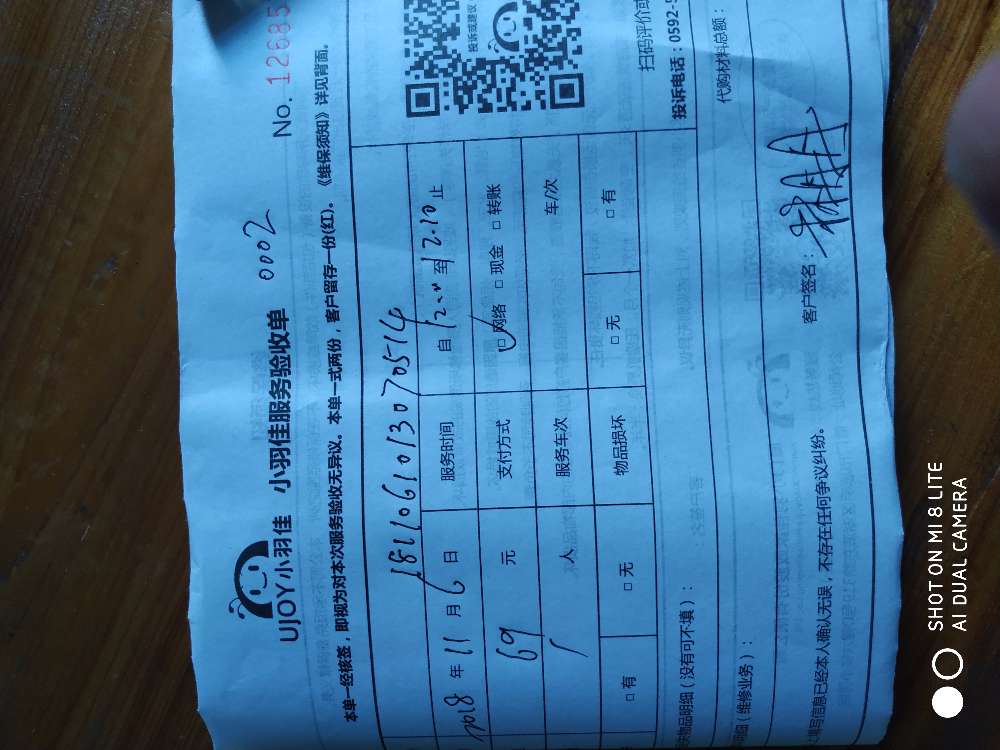 UJOY小羽佳 小羽佳服务验收单 0002 No. 12685
本单一经核签，即视为对本次服务验收无异议。本单一式两份，客户留存一份(红)。《维保须知》详见背面。
1811061013070514
2018 年 11 月 6 日 服务时间 自 至 12.10 止
69 元 支付方式 □ 网络 □ 现金 □ 转账
1 人 服务车次 车/次
□ 有 □ 无 物品损坏 □ 无 □ 有
投诉或建议
扫码评价或
投诉电话：0592-
物品明细（没有可不填）：
代购材料总额：
明细（维修业务）：
填写信息已经本人确认无误，不存在任何争议纠纷。 客户签名：
SHOT ON MI 8 LITE
AI DUAL CAMERA